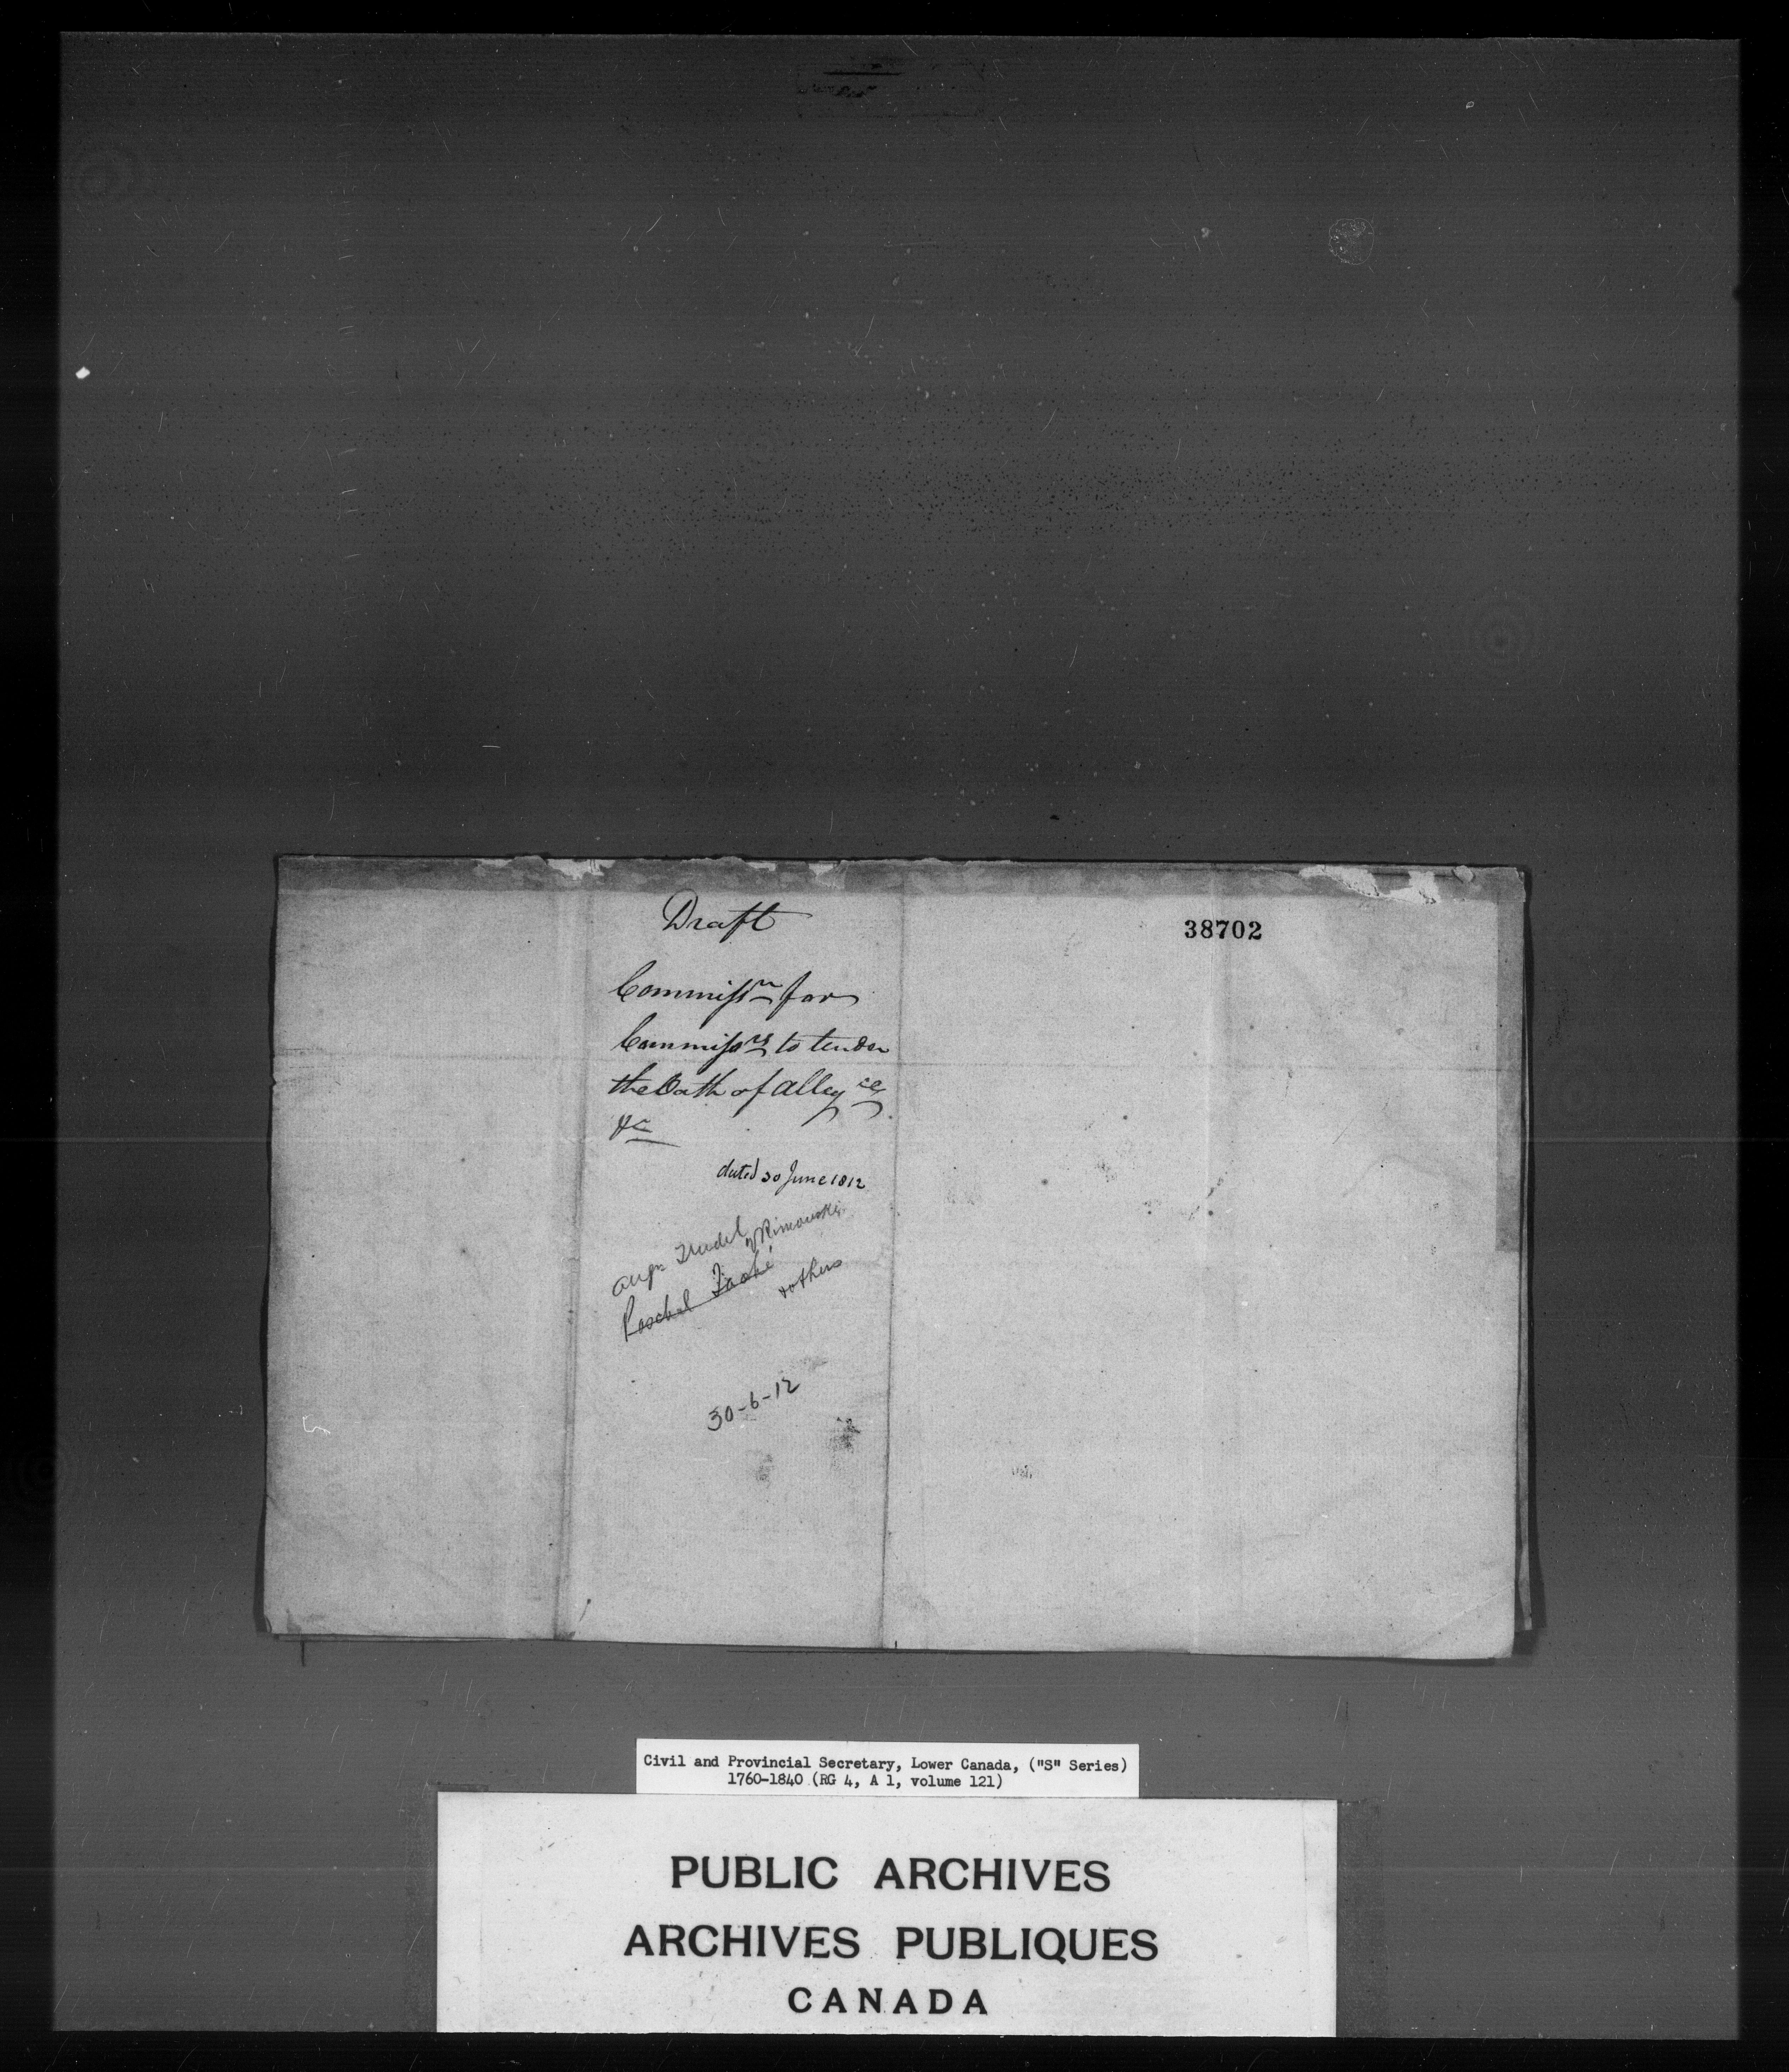 Draft
38702
Commissn for
Commissrs to tender
the Oath of Allegce
&c
dated 30 June 1812
Augn Trudel of Rimouski
Paschal Taché
& others
30-6-12
Civil and Provincial Secretary, Lower Canada, ("S" Series)
1760-1840 (RG 4, A 1, volume 121)
PUBLIC ARCHIVES
ARCHIVES PUBLIQUES
CANADA